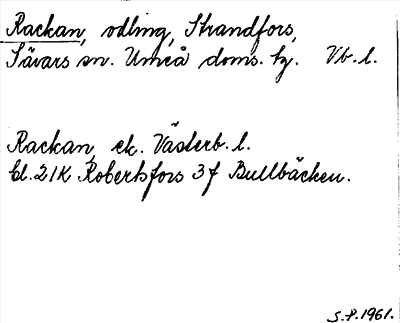 Rackan, odling, Strandfors,
Sävars sn. Umeå doms. tg. Vb. l.
Rackan, ek. Västerb. l.
bl. 21K Robertsfors 3f Bullbäcken.
S.P. 1961.